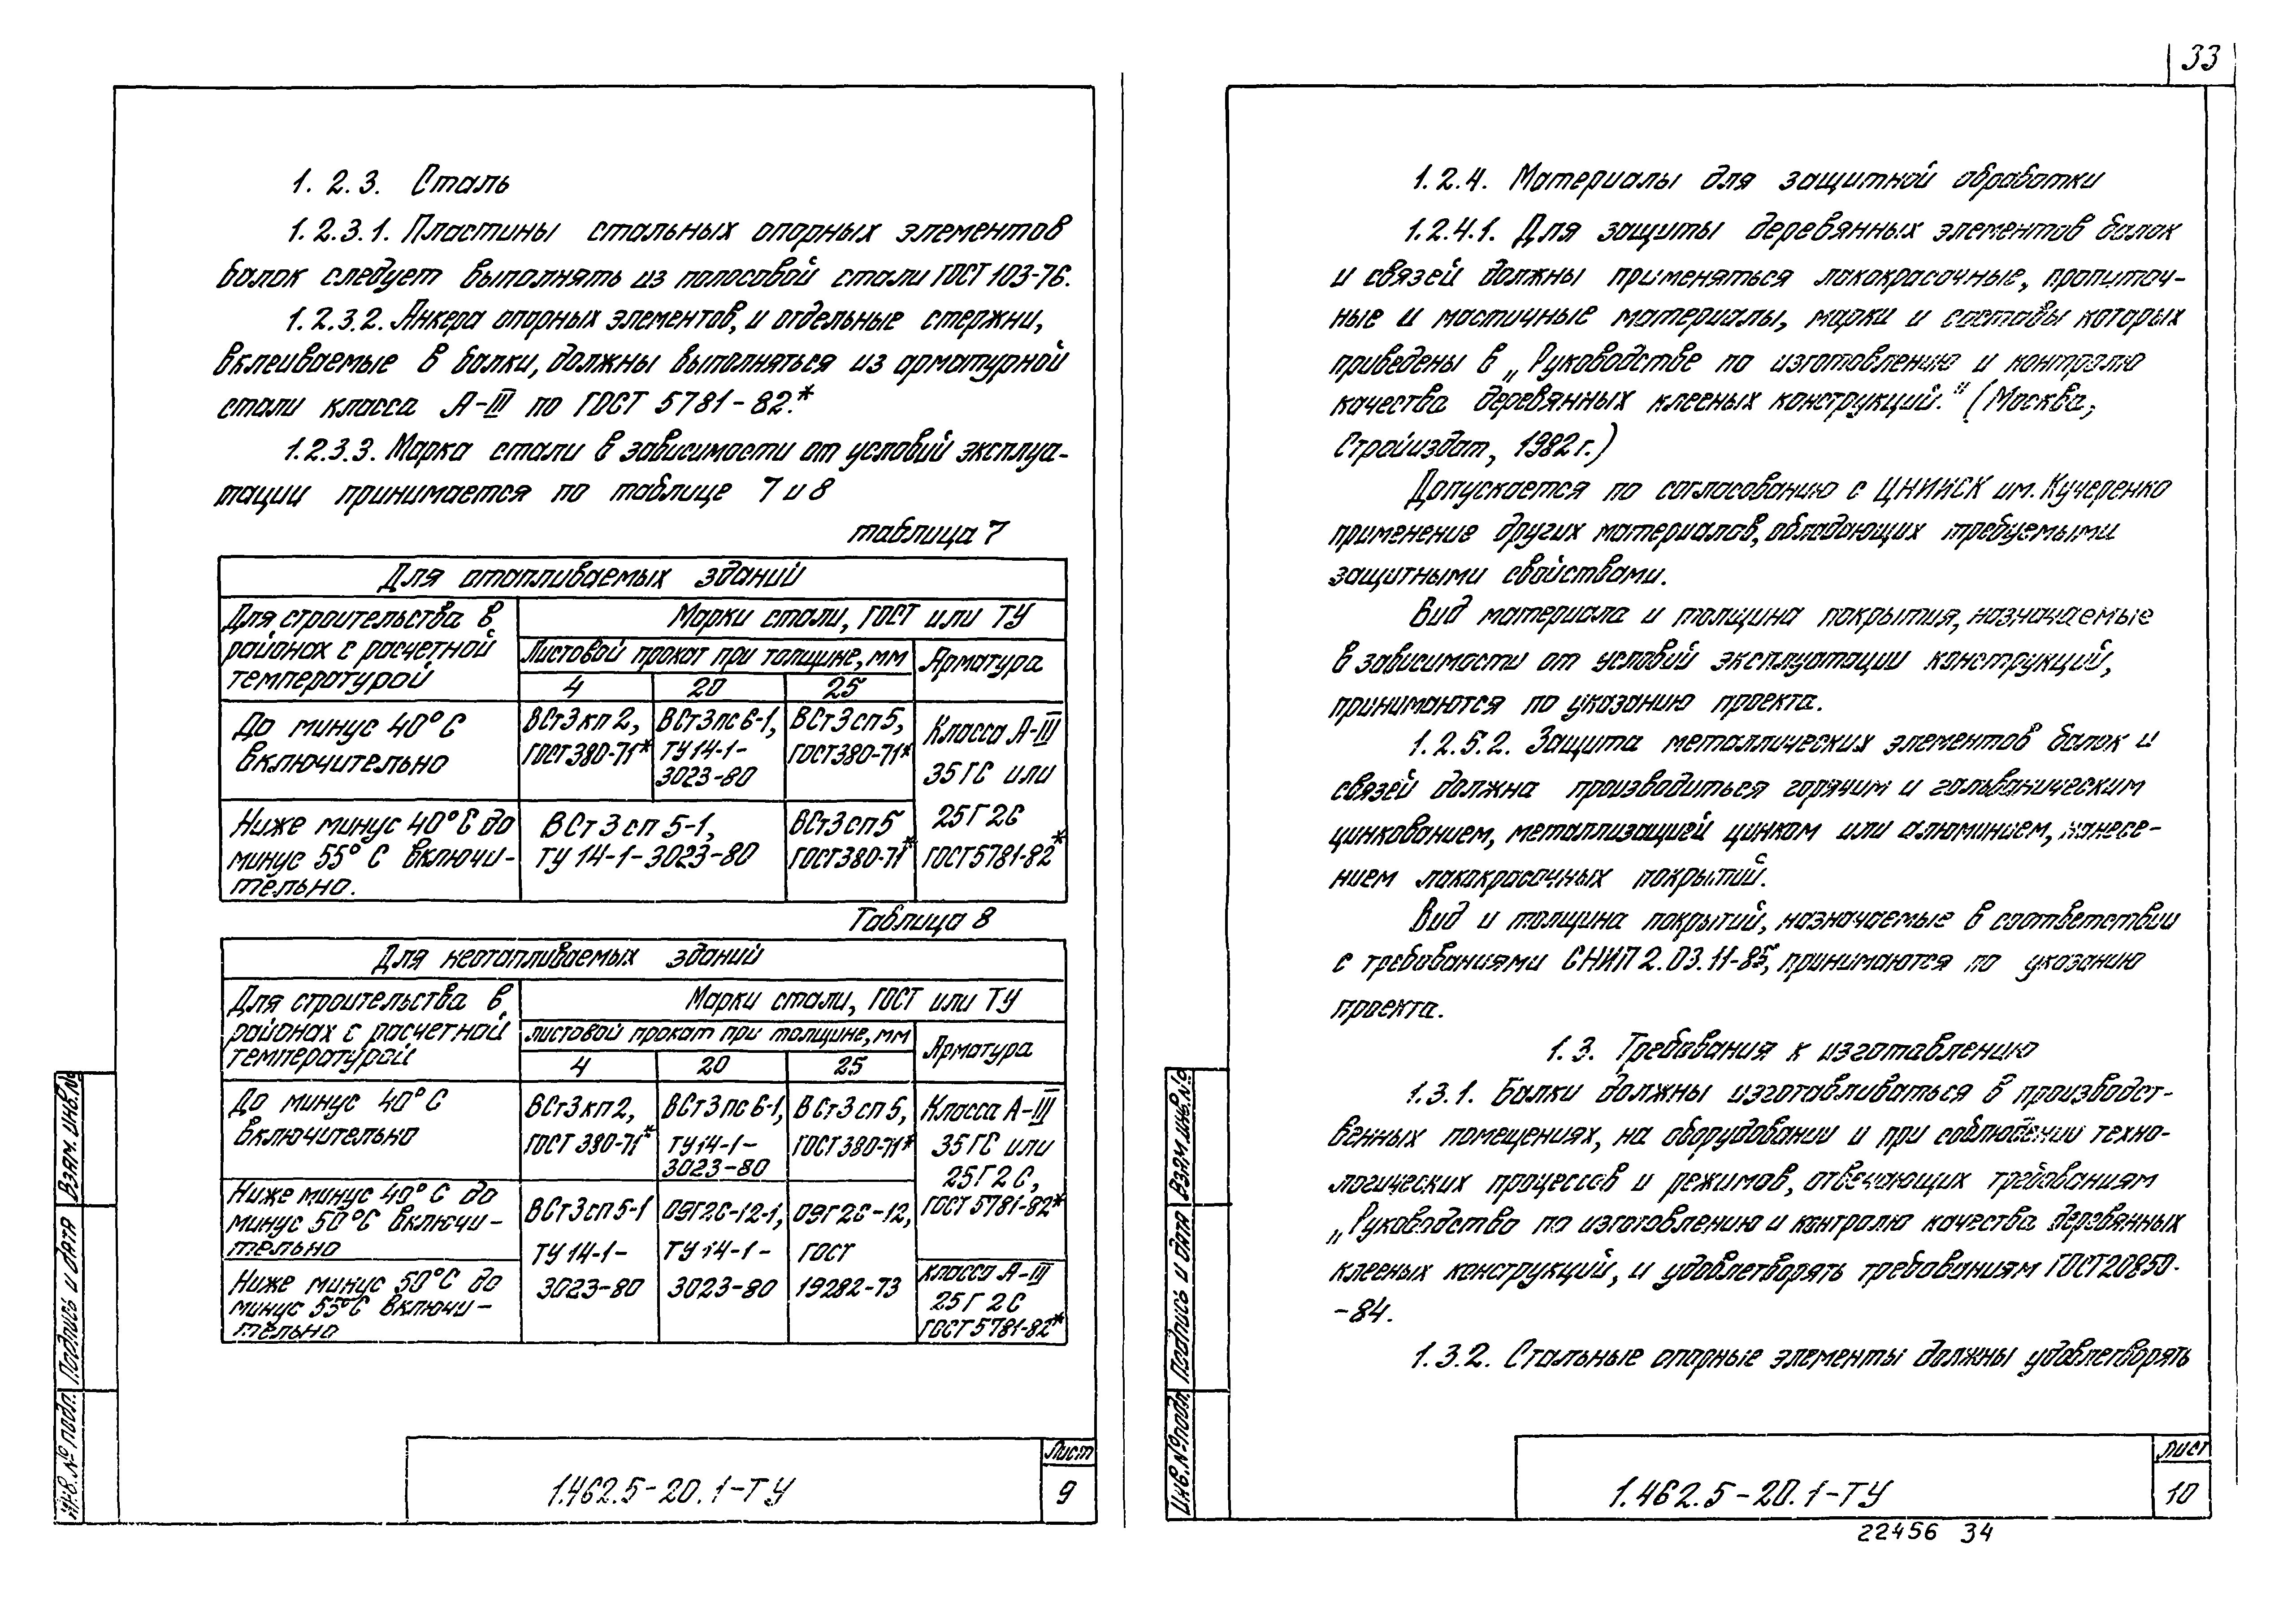 33
1.2.3. Сталь
1.2.3.1. Пластины стальных опорных элементов
балок следует выполнять из полосовой стали ГОСТ 103-76.
1.2.3.2. Анкера опорных элементов, и отдельные стержни,
вклеиваемые в балки, должны выполняться из арматурной
стали класса А-III по ГОСТ 5781-82.*
1.2.3.3. Марка стали в зависимости от условий эксплуа-
тации принимается по таблице 7 и 8
таблица 7
Для отапливаемых зданий
Для строительства в
районах с расчетной
температурой
Марки стали, ГОСТ или ТУ
Листовой прокат при толщине, мм
Арматура
4
20
25
До минус 40°С
включительно
ВСт3кп2,
ГОСТ380-71*
ВСт3пс6-1,
ТУ14-1-
3023-80
ВСт3сп5,
ГОСТ380-71*
Класса А-III
35ГС или
25Г2С
ГОСТ5781-82*
Ниже минус 40°С до
минус 55°С включи-
тельно.
ВСт3сп5-1,
ТУ14-1-3023-80
ВСт3сп5
ГОСТ380-71*
Таблица 8
Для неотапливаемых зданий
Для строительства в
районах с расчетной
температурой
Марки стали, ГОСТ или ТУ
листовой прокат при толщине, мм
Арматура
4
20
25
До минус 40°С
включительно
ВСт3кп2,
ГОСТ 380-71*
ВСт3пс6-1,
ТУ14-1-
3023-80
ВСт3сп5,
ГОСТ380-71*
Класса А-III
35ГС или
25Г2С,
ГОСТ5781-82*
Ниже минус 40°С до
минус 50°С включи-
тельно
ВСт3сп5-1
ТУ14-1-
3023-80
09Г2С-12-1,
ТУ14-1-
3023-80
09Г2С-12,
ГОСТ
19282-73
Ниже минус 50°С до
минус 55°С включи-
тельно
класса А-III
25Г2С
ГОСТ5781-82*
Взям. инв.№
Подпись и дата
Инв.№ подл.
1.462.5-20.1-ТУ
Лист
9
1.2.4. Материалы для защитной обработки
1.2.4.1. Для защиты деревянных элементов балок
и связей должны применяться лакокрасочные, пропиточ-
ные и мастичные материалы, марки и составы которых
приведены в „Руководстве по изготовлению и контролю
качества деревянных клееных конструкций.“ (Москва,
Стройиздат, 1982г.)
Допускается по согласованию с ЦНИИСК им. Кучеренко
применение других материалов, обладающих требуемыми
защитными свойствами.
Вид материала и толщина покрытия, назначаемые
в зависимости от условий эксплуатации конструкций,
принимаются по указанию проекта.
1.2.5.2. Защита металлических элементов балок и
связей должна производиться горячим и гальваническим
цинкованием, металлизацией цинком или алюминием, нанесе-
нием лакокрасочных покрытий.
Вид и толщина покрытий, назначаемые в соответствии
с требованиями СНИП 2.03.11-85, принимаются по указанию
проекта.
1.3. Требования к изготовлению
1.3.1. Балки должны изготавливаться в производст-
венных помещениях, на оборудовании и при соблюдении техно-
логических процессов и режимов, отвечающих требованиям
„Руководство по изготовлению и контролю качества деревянных
клееных конструкций, и удовлетворять требованиям ГОСТ20850-
-84.
1.3.2. Стальные опорные элементы должны удовлетворять
Взям.инв.№
Подпись и дата
Инв.№подл.
1.462.5-20.1-ТУ
лист
10
22456 34